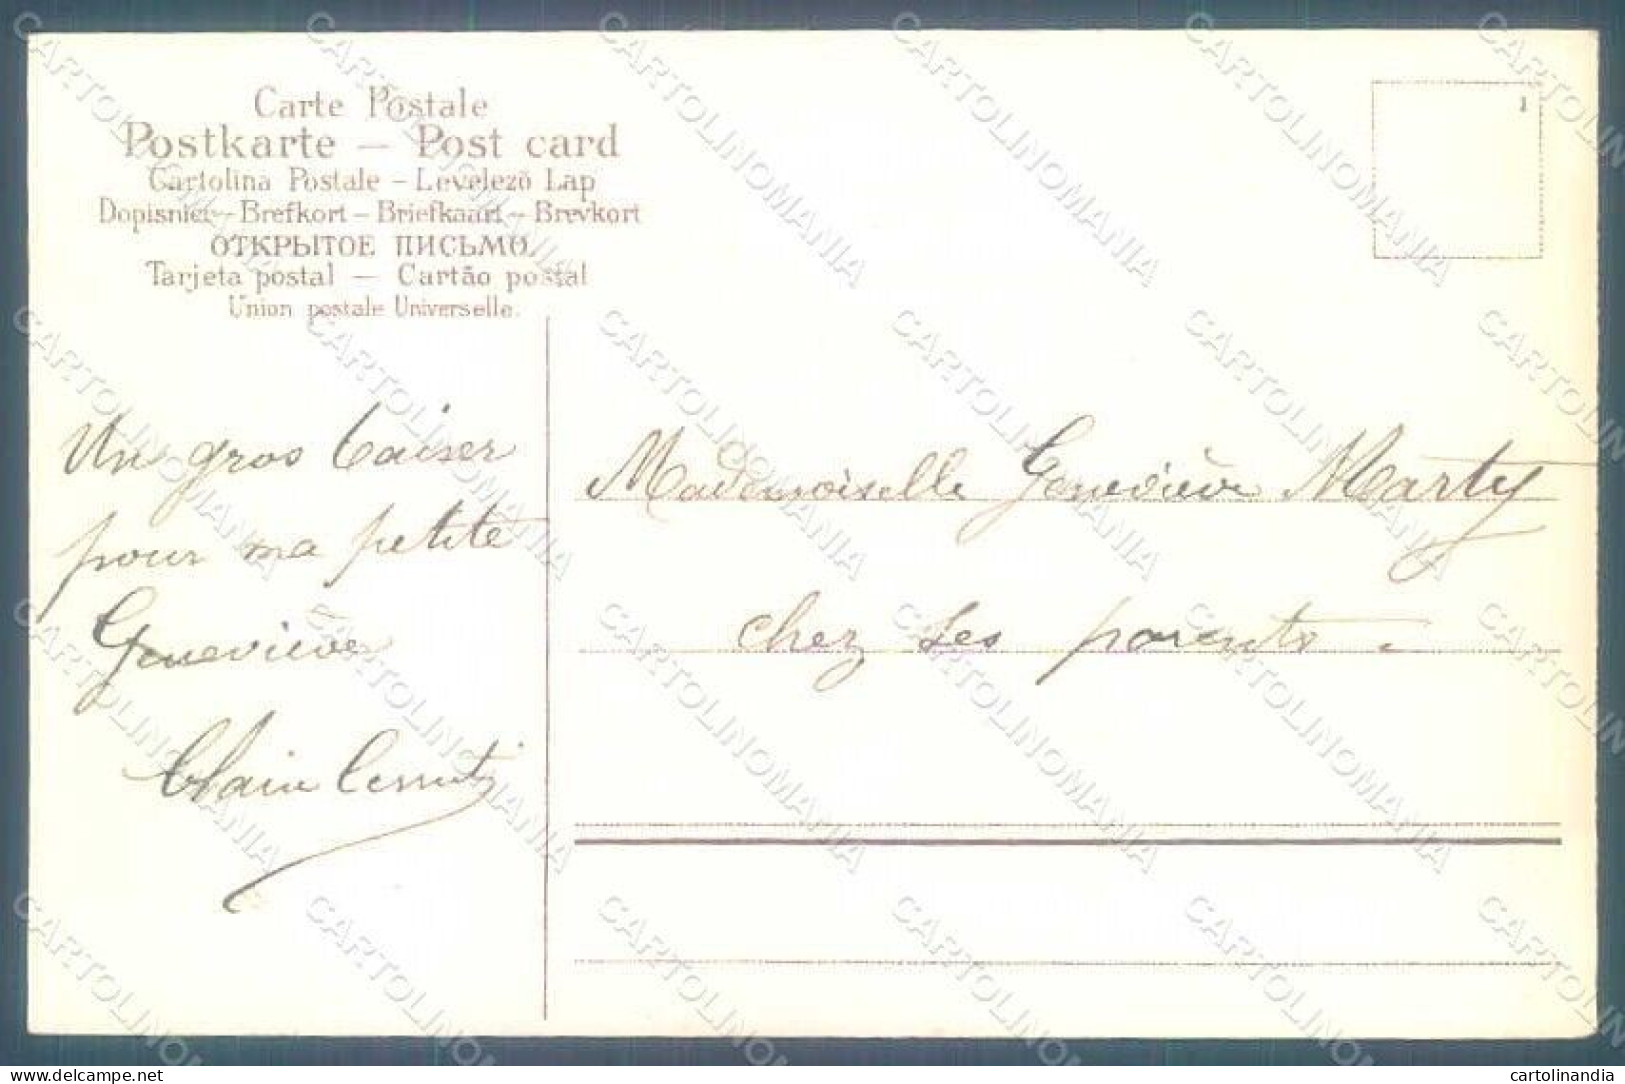 Carte Postale
Postkarte — Post card
Cartolina Postale – Levelezö Lap
Dopisnice – Brefkort – Briefkaart – Brevkort
ОТКРЫТОЕ ПИСЬМО.
Tarjeta postal — Cartão postal
Union postale Universelle.
1
Un gros baiser
pour ma petite
Geneviève
Mademoiselle Geneviève Marty
chez ses parents.
CARTOLINOMANIA
delcampe.net
cartolinandia